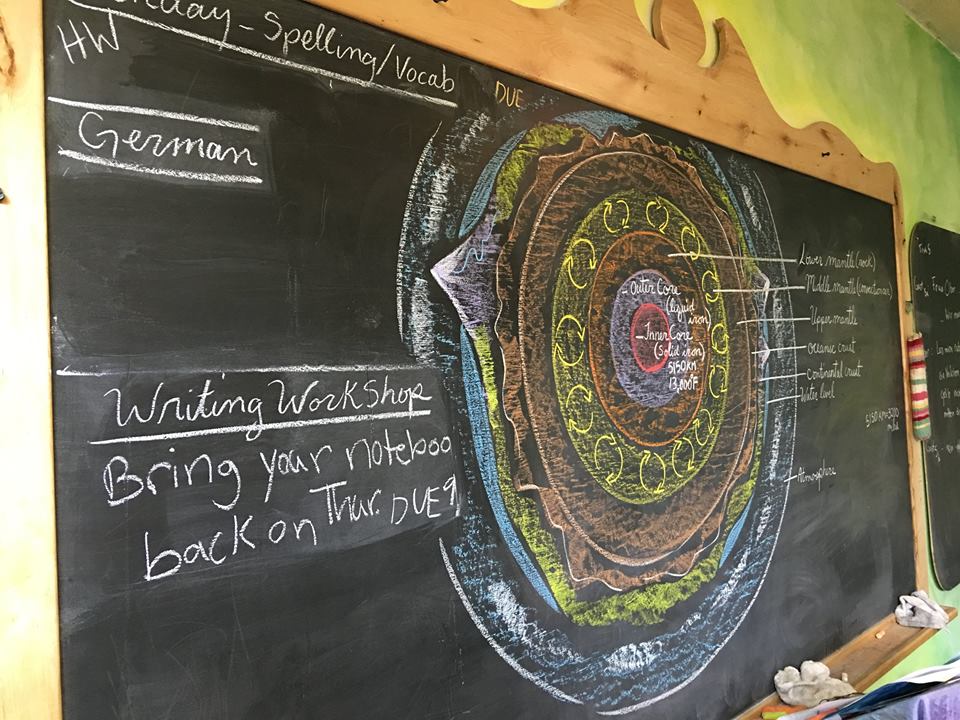 HW
Spelling/Vocab
DUE
German
Writing WorkShop
Bring your noteboo
back on Thur. DUE
- Outer Core
(liquid
iron)
- Inner Core
(Solid iron)
5150km
13,000F
Lower mantle (rock)
Middle mantle (convection)
Upper mantle
Oceanic crust
Continental crust
Water level
Atmosphere